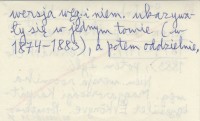 wersja węg. i niem. ukazywa-
ły się w jednym tomie (w
1874-1883), a potem oddzielnie,